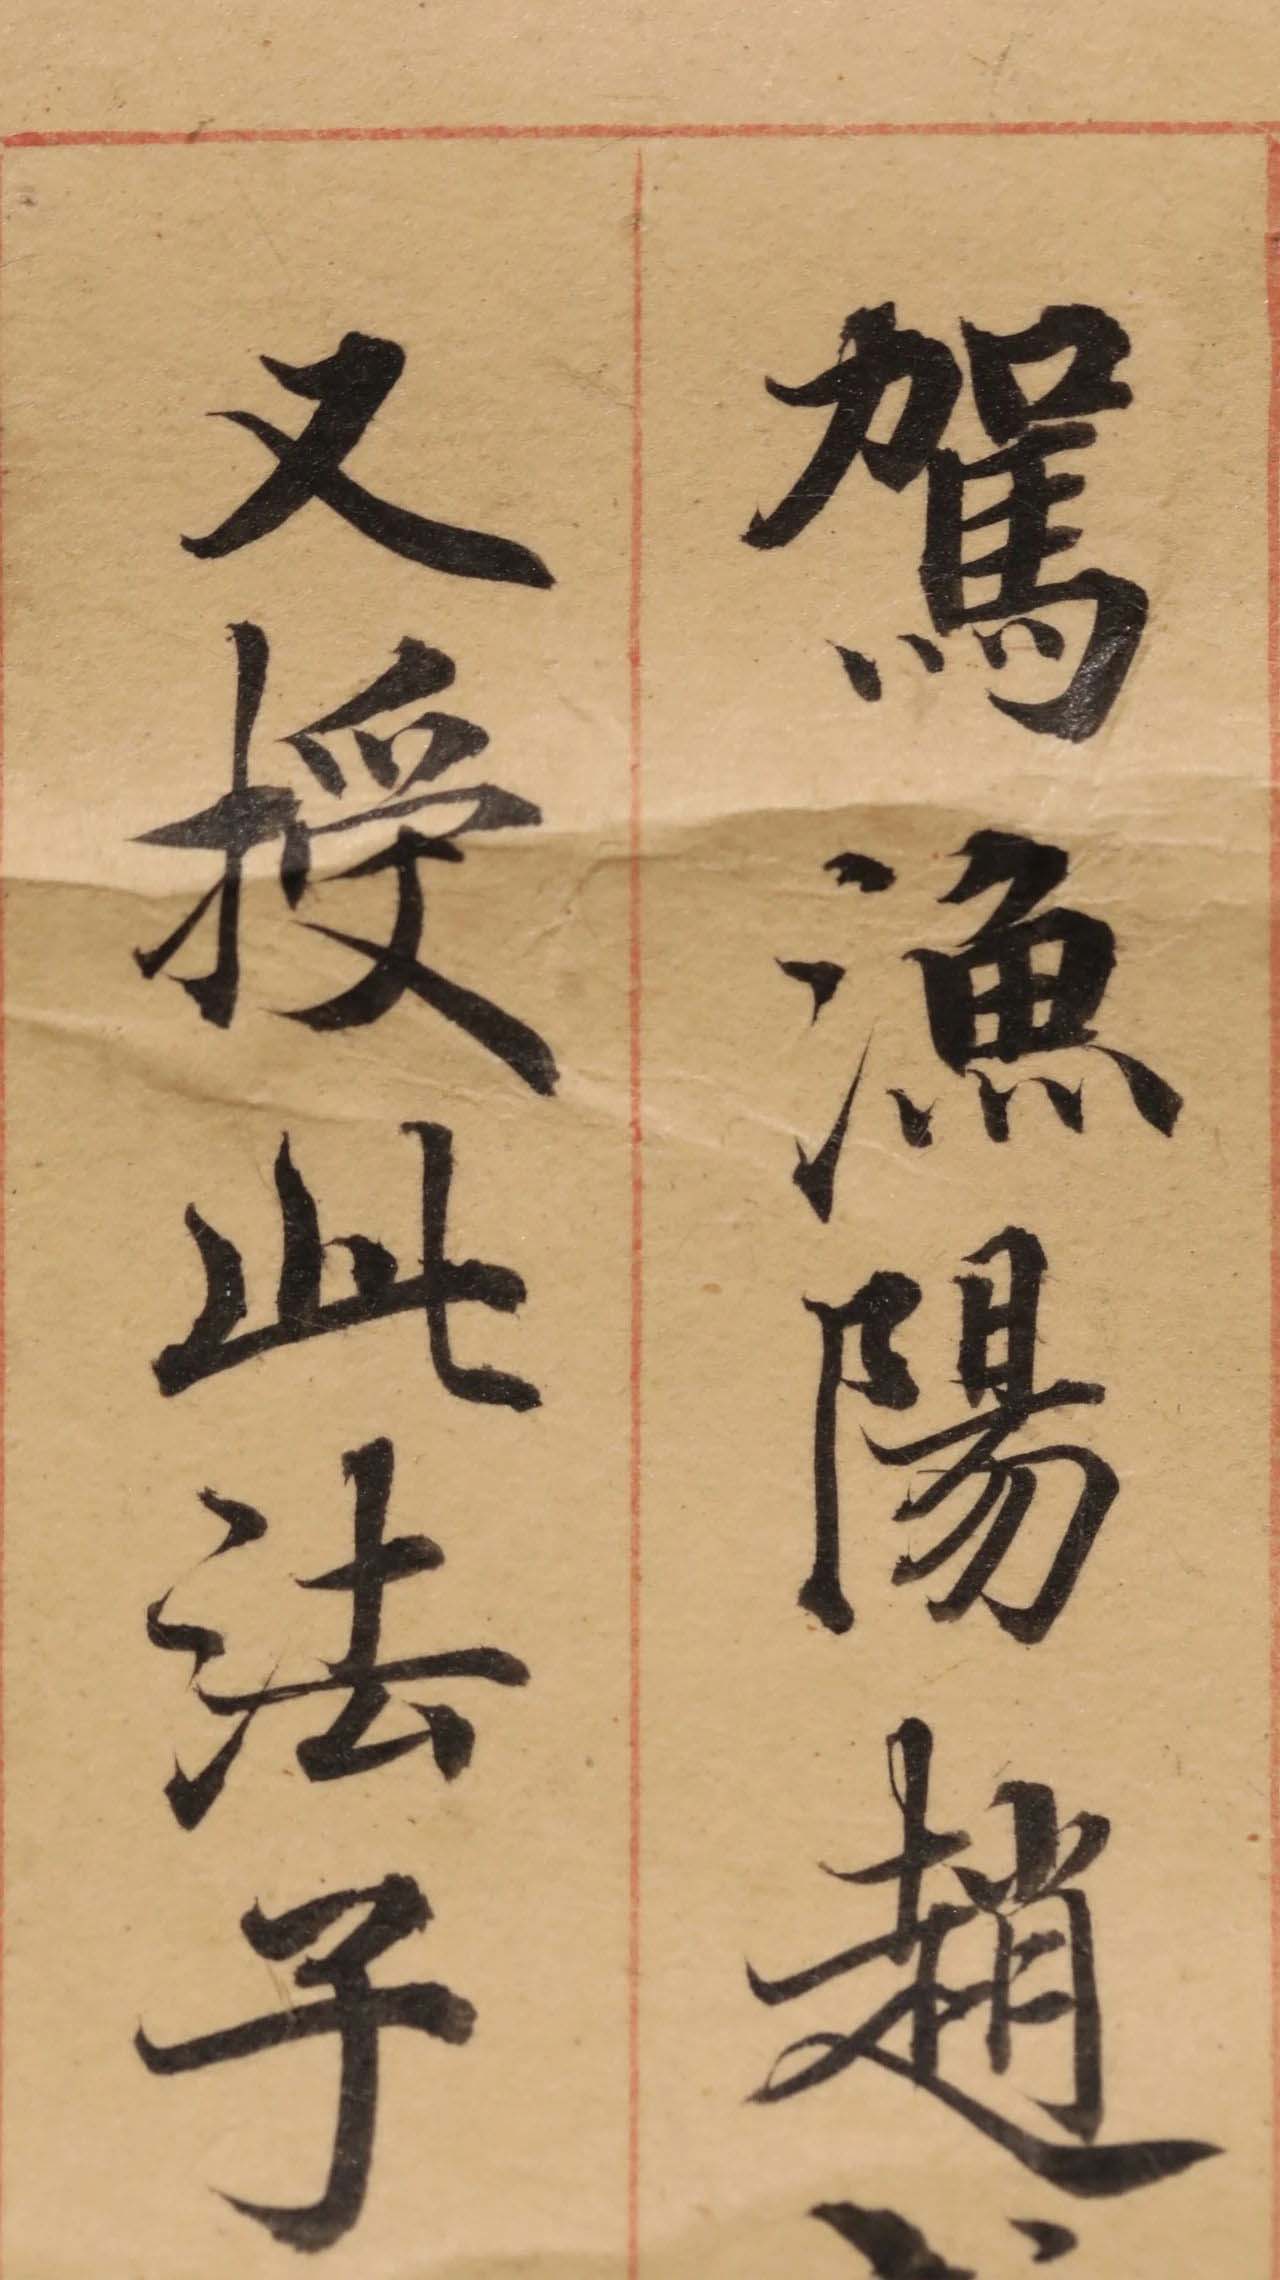 駕漁陽趙
又授此法子